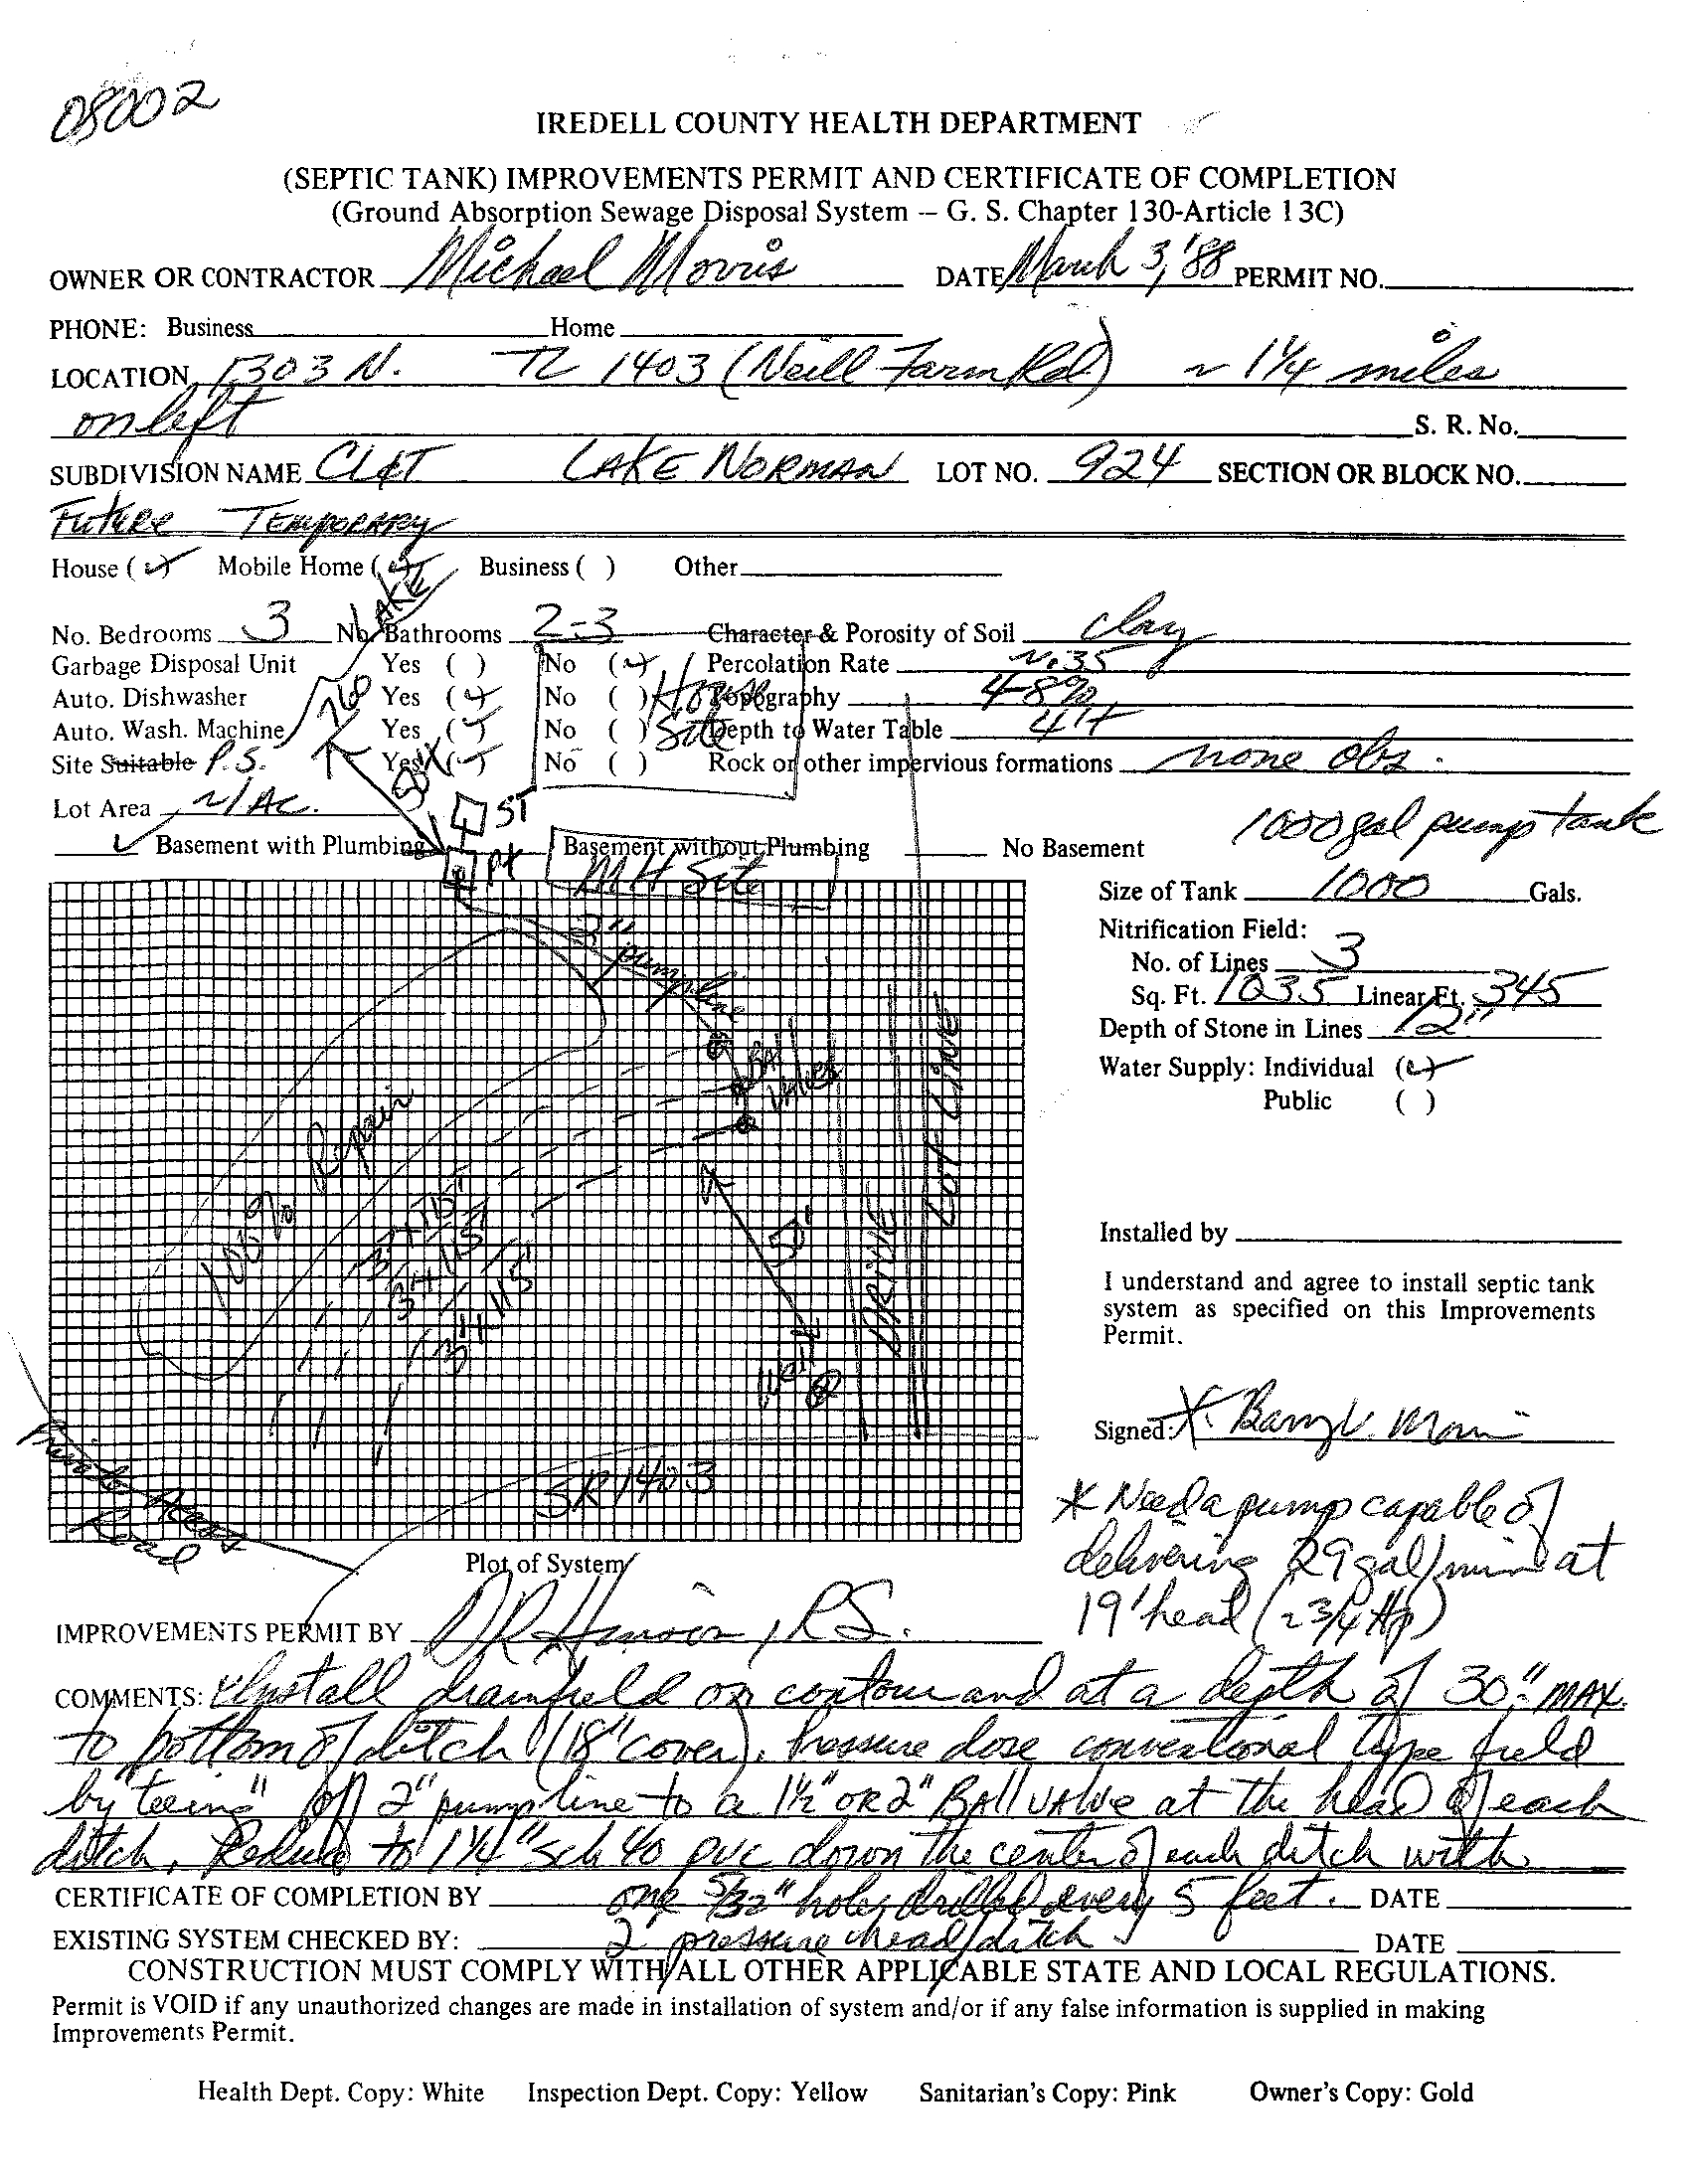 08002
IREDELL COUNTY HEALTH DEPARTMENT
(SEPTIC TANK) IMPROVEMENTS PERMIT AND CERTIFICATE OF COMPLETION
(Ground Absorption Sewage Disposal System -- G. S. Chapter 130-Article 13C)
OWNER OR CONTRACTOR Michael Morris DATE March 3, '88 PERMIT NO.
PHONE: Business Home
LOCATION 1303 N. TL 1403 (Neill Farm Rd) ~ 1 1/4 miles
on left S. R. No.
SUBDIVISION NAME CL&T LAKE NORMAN LOT NO. 924 SECTION OR BLOCK NO.
Future Temporary
House (✓) Mobile Home (✓) Business ( ) Other
LAKE
No. Bedrooms 3 No. Bathrooms 2-3 Character & Porosity of Soil clay
Garbage Disposal Unit Yes ( ) No (✓) Percolation Rate ~.35
Auto. Dishwasher 760 Yes (✓) No ( ) House Topography 4-8%
Auto. Wash. Machine Yes (✓) No ( ) Site Depth to Water Table 4'+
Site Suitable P.S. Yes (✓) No ( ) Rock or other impervious formations none obs.
Lot Area ~1 AC. ST
1000 gal pump tank
✓ Basement with Plumbing Basement without Plumbing No Basement
PT MH Site
Size of Tank 1000 Gals.
Nitrification Field:
No. of Lines 3
Sq. Ft. 1035 Linear Ft. 345
Depth of Stone in Lines 12"
Water Supply: Individual (✓)
Public ( )
2" pump line
Ball Valves
LOT LINE
100% Repair
3'x115'
3'x115'
3'x115'
50'
DRIVE
Well
Installed by
I understand and agree to install septic tank
system as specified on this Improvements
Permit.
Signed: X Barry V. Morris
SR 1403
Private Road
* Need a pump capable of
delivering 29 gal/min at
19' head (~3/4 Hp)
Plot of System
IMPROVEMENTS PERMIT BY , R.S.
COMMENTS: *Install drainfield on contour and at a depth of 30" MAX.
to bottom of ditch (18" cover). Pressure dose conventional type field
by "teeing" off 2" pump line to a 1½" OR 2" Ball valve at the head of each
ditch. Reduce to 1 1/4" Sch 40 pvc down the center of each ditch with
CERTIFICATE OF COMPLETION BY one 5/32" hole drilled every 5 feet. DATE
EXISTING SYSTEM CHECKED BY: 2' pressure head/ditch DATE
CONSTRUCTION MUST COMPLY WITH ALL OTHER APPLICABLE STATE AND LOCAL REGULATIONS.
Permit is VOID if any unauthorized changes are made in installation of system and/or if any false information is supplied in making
Improvements Permit.
Health Dept. Copy: White Inspection Dept. Copy: Yellow Sanitarian's Copy: Pink Owner's Copy: Gold